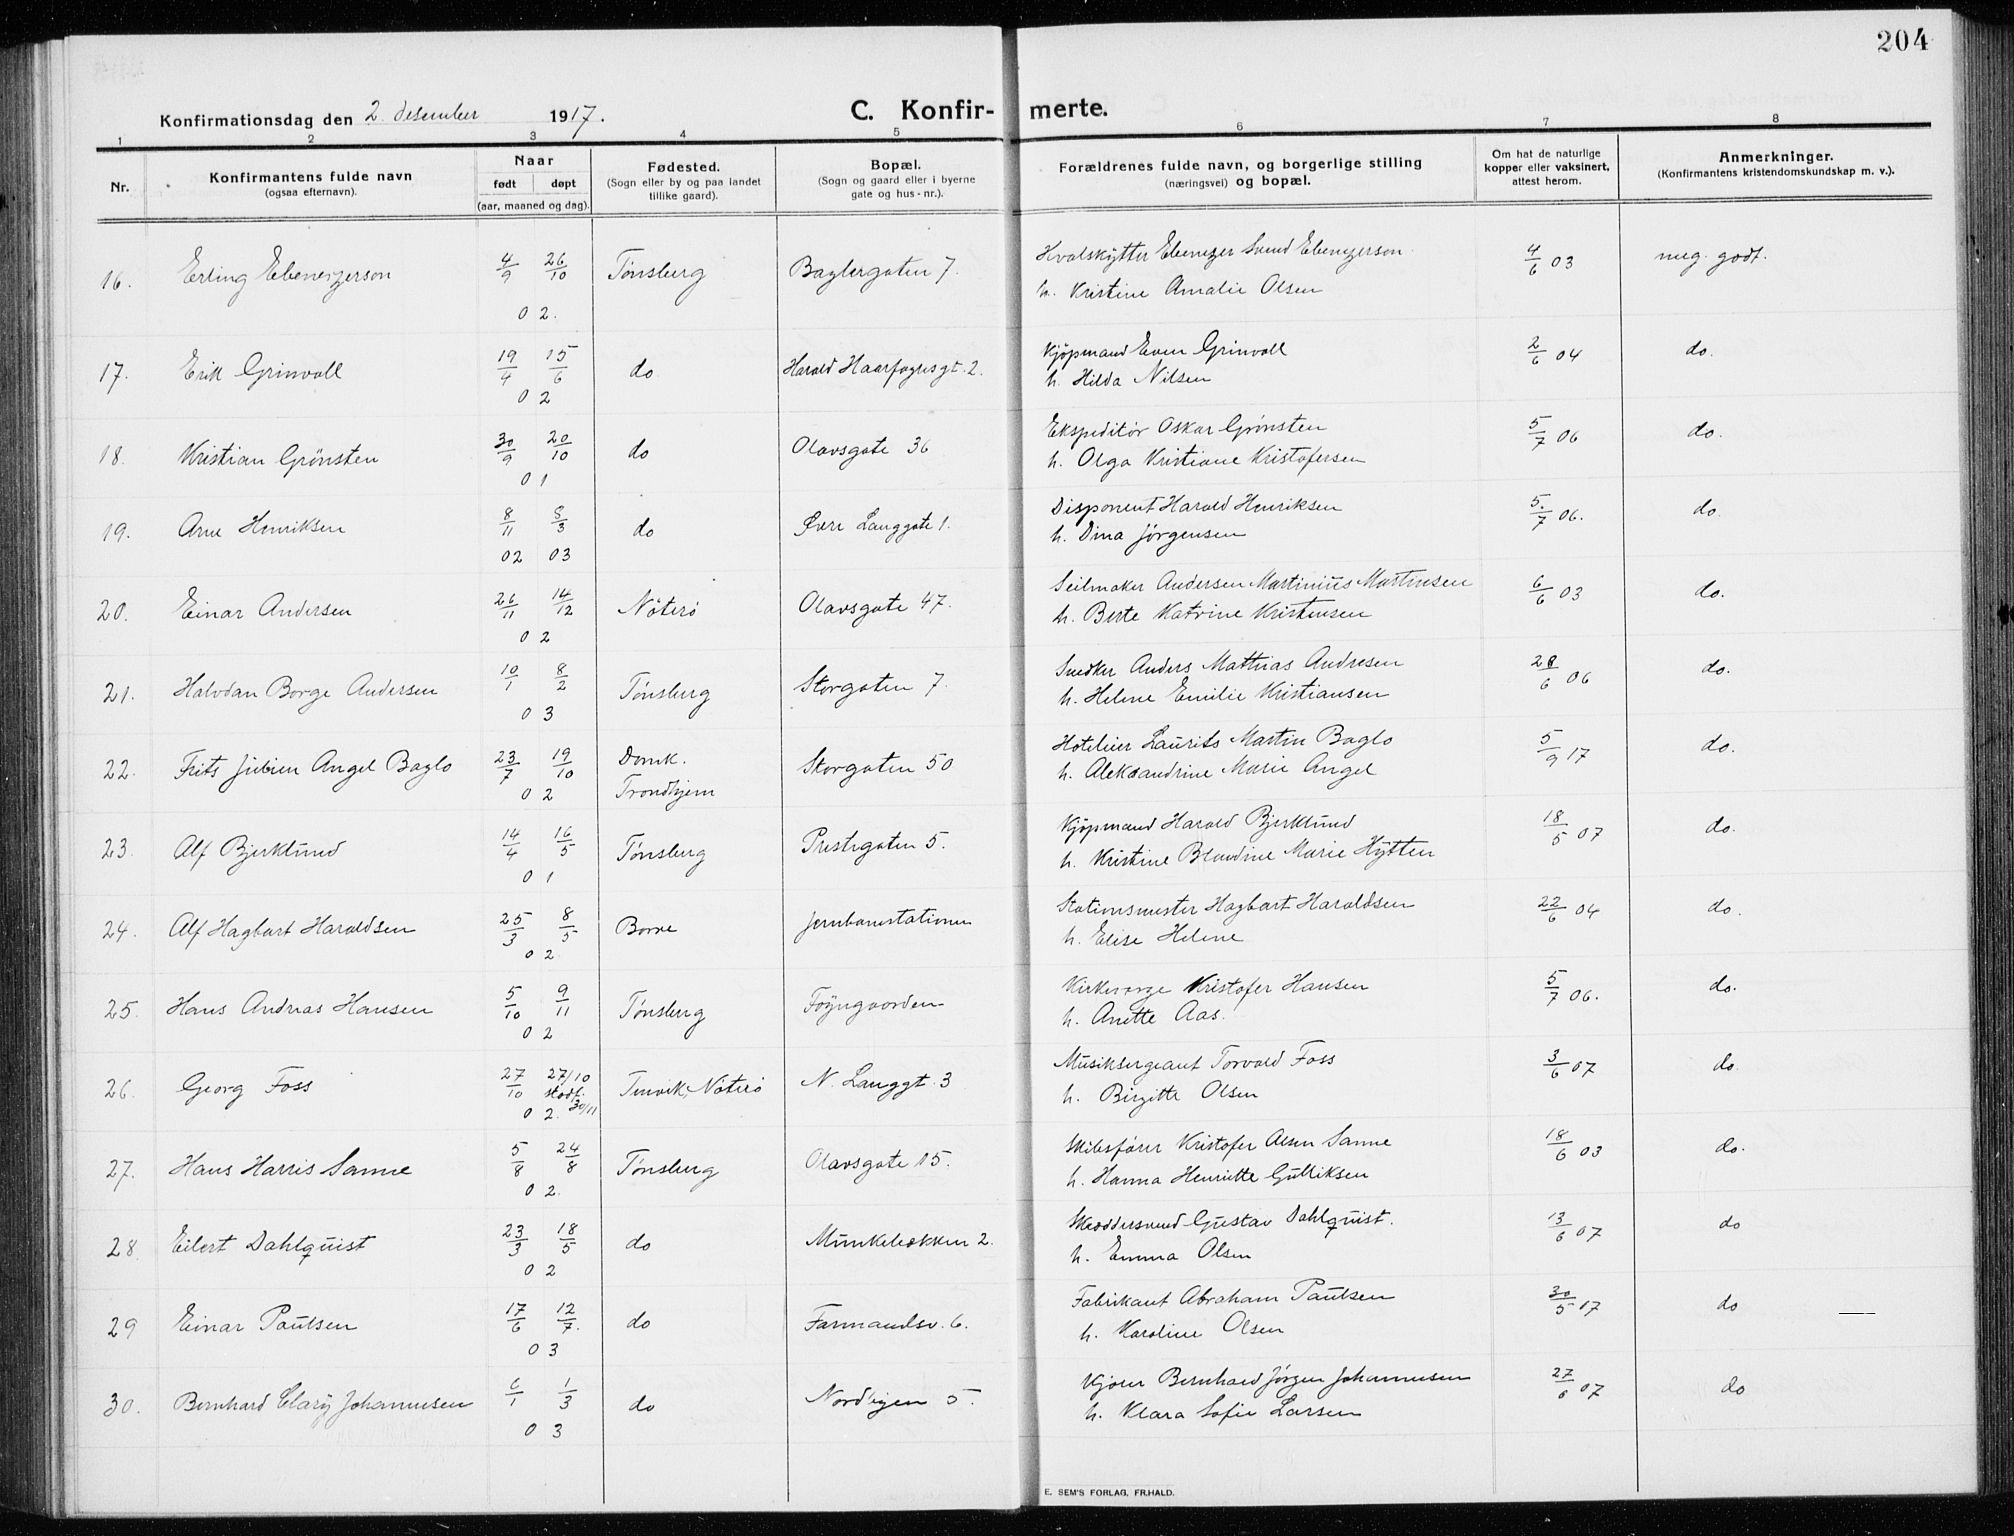 204
Konfirmationsdag den 2. desember 1917.
C. Konfir- merte.
1 2 3 4 5 6 7 8
Nr.
Konfirmantens fulde navn
(ogsaa efternavn).
Naar
født døpt
(aar, maaned og dag).
Fødested.
(Sogn eller by og paa landet
tillike gaard).
Bopæl.
(Sogn og gaard eller i byerne
gate og hus-nr.).
Forældrenes fulde navn, og borgerlige stilling
(næringsvei) og bopæl.
Om hat de naturlige
kopper eller vaksinert,
attest herom.
Anmerkninger.
(Konfirmantens kristendomskundskap m. v.).
16. Erling Ebenezerson 4/9 26/10 02. Tønsberg Baglergaten 7. Hvalskytter Ebenezer Svend Ebenezerson 4/6 03 meg. godt.
h. Kristine Amalie Olsen
17. Erik Grinvoll 19/4 15/6 02 do Harald Haarfagresgt. 2. Kjöpmand Even Grinvoll 2/6 04 do.
h. Hilda Nilsen
18. Kristian Grönsten 30/9 20/10 01 do Olavsgate 36 Ekspeditör Oskar Grönsten 5/7 06 do.
h. Olga Kristiane Kristofersen
19. Arne Henriksen 8/11 8/3 02 03 do Øvre Langgate 1. Disponent Harald Henriksen 5./7 06. do.
h. Dina Jörgensen
20. Einar Andersen 26/11 14/12 02 Nöterö Olavsgate 47. Seilmaker Andersen Martinius Martinsen 6/6 03 do.
h. Berte Katrine Kristensen
21. Halvdan Borge Andersen 10/1 8/2 03 Tönsberg Storgaten 7. Snedker Anders Mathias Andresen 28/6 06 do.
h. Helene Emilie Kristiansen
22. Frits Julien Angel Baglo 23/7 19/10 02 Domk. Trondhjem Storgaten 50 Hotelier Laurits Martin Baglo 5/9 17 do.
h. Aleksandrine Marie Angel
23. Alf Bjerklund 14/4 16/5 01 Tönsberg Prestegaten 5. Kjöpmand Harald Bjerklund 18/5 07 do.
h. Kristine Blandine Marie Hytten
24. Alf Hagbart Haraldsen 25/3 8/5 02 Borre Jernbanestationen Stationsmester Hagbart Haraldsen 22/6 04 do.
h. Elise Helene
25. Hans Andreas Hansen 5/10 9/11 02 Tönsberg Föyngaarden Kirkeverge Kristofer Hansen 5/7 06. do.
h. Anette Aas.
26. Georg Foss 27/10 27/10 stadf. 30/11 02. Tenvik, Nöterö N. Langgt. 3 Musiksergeant Torvald Foss 3/6 07 do.
h. Birgitte Olsen
27. Hans Harris Sanne 5/8 24/8 02. Tönsberg Olavsgate 15. Skibsförer Kristofer Olsen Sanne 18/6 03 do.
h. Hanna Henriette Gulliksen
28. Eilert Dahlquist 23/3 18/5 02 do Munkebakken 2. Skräddersvend Gustav Dahlquist. 13/6 07 do
h. Emma Olsen
29 Einar Paulsen 17/6 12/7. 03 do Farmandsv. 6. Fabrikant Abraham Paulsen 30/5 17 do
h. Karoline Olsen
30. Bernhard Clary Johannesen 6/1 1/3 03 do Nordbyen 5. Kjörer Bernhard Jörgen Johannesen 27/6 07 do
h. Klara Sofie Larsen
E. SEM'S FORLAG, FR.HALD.